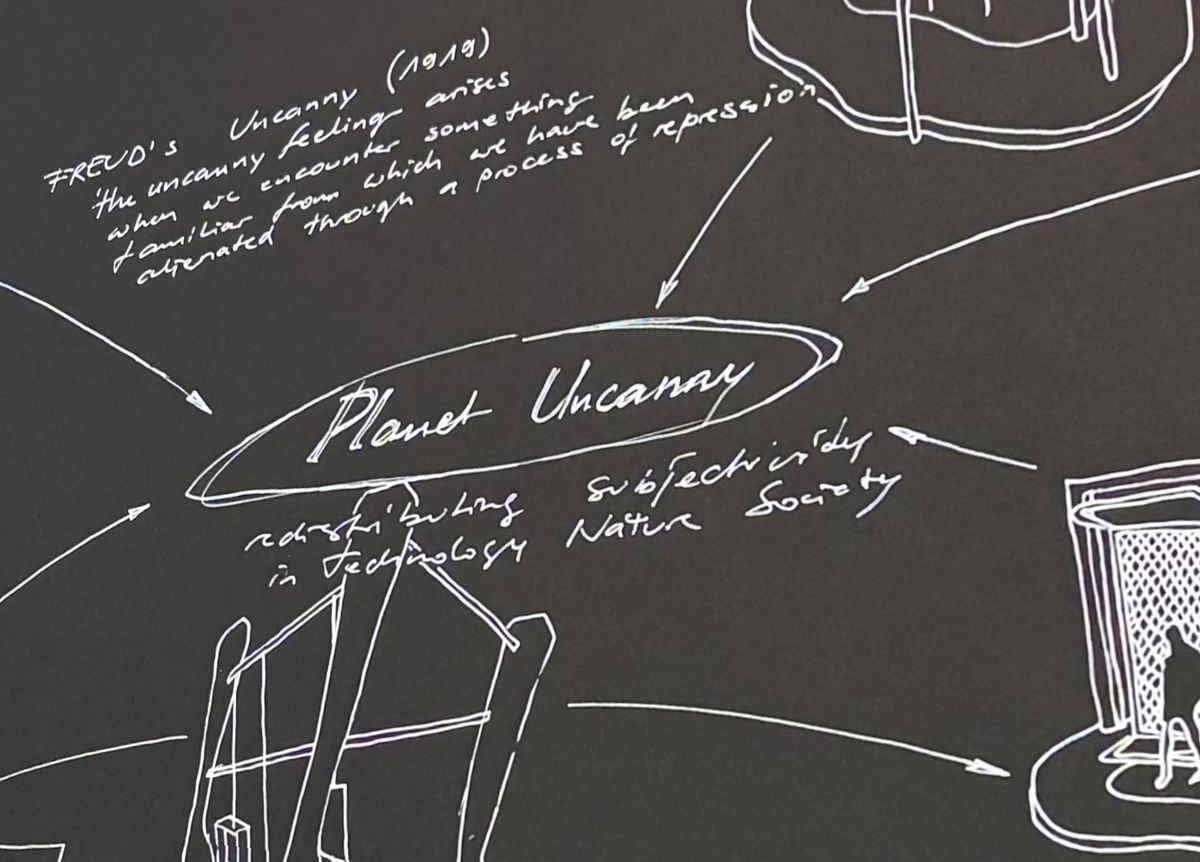 FREUD's Uncanny (1919)
the uncanny feeling arises
when we encounter something
familiar from which we have been
alienated through a process of repression
Planet Uncanny
redistributing subjectivity
in Technology Nature Society